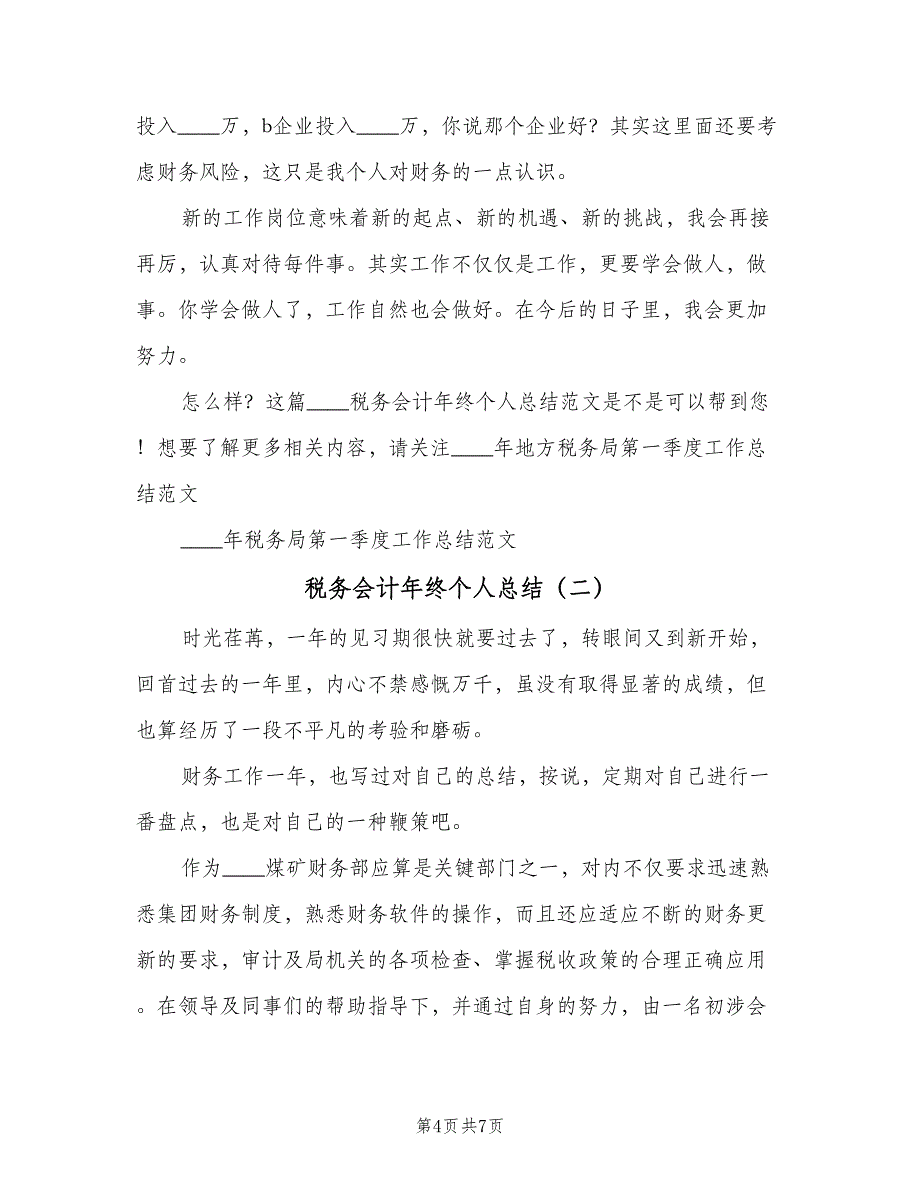 投入____万，b企业投入____万，你说那个企业好？其实这里面还要考
虑财务风险，这只是我个人对财务的一点认识。
新的工作岗位意味着新的起点、新的机遇、新的挑战，我会再接
再厉，认真对待每件事。其实工作不仅仅是工作，更要学会做人，做
事。你学会做人了，工作自然也会做好。在今后的日子里，我会更加
努力。
怎么样？这篇____税务会计年终个人总结范文是不是可以帮到您
！想要了解更多相关内容，请关注____年地方税务局第一季度工作总
结范文
____年税务局第一季度工作总结范文
税务会计年终个人总结（二）
时光荏苒，一年的见习期很快就要过去了，转眼间又到新开始，
回首过去的一年里，内心不禁感慨万千，虽没有取得显著的成绩，但
也算经历了一段不平凡的考验和磨砺。
财务工作一年，也写过对自己的总结，按说，定期对自己进行一
番盘点，也是对自己的一种鞭策吧。
作为____煤矿财务部应算是关键部门之一，对内不仅要求迅速熟
悉集团财务制度，熟悉财务软件的操作，而且还应适应不断的财务更
新的要求，审计及局机关的各项检查、掌握税收政策的合理正确应用
。在领导及同事们的帮助指导下，并通过自身的努力，由一名初涉会
第4页共7页